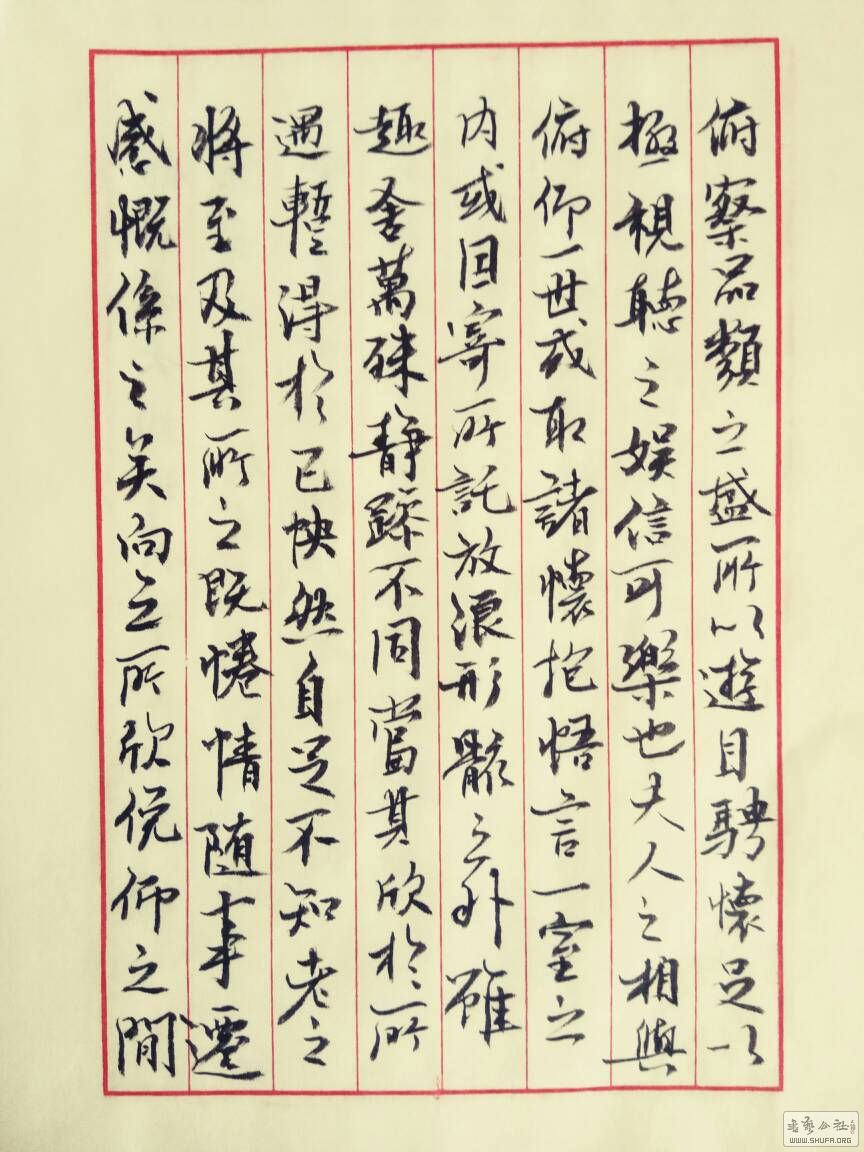 俯察品類之盛所以遊目騁懷足以
極視聽之娛信可樂也夫人之相與
俯仰一世或取諸懷抱悟言一室之
内或因寄所託放浪形骸之外雖
趣舍萬殊静躁不同當其欣於所
遇暫得於己怏然自足不知老之
將至及其所之既惓情随事遷
感慨係之矣向之所欣俛仰之間
WWW.SHUFA.ORG